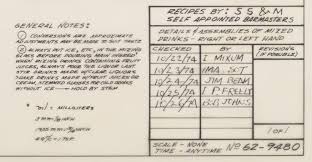 GENERAL NOTES:
① CONVERSIONS ARE APPROXIMATE
ADJUSTMENTS MAY BE MADE TO SUIT TASTE
② ALWAYS PUT ICE, ETC, IN THE MIXING
GLASS BEFORE POURING. WHEN
WHEN MIXING DRINKS CONTAINING FRUIT
JUICES, ALWAYS POUR THE LIQUOR LAST.
STIR DRINKS MADE W/CLEAR LIQUORS.
SHAKE DRINKS MADE W/FRUIT JUICES OR
CREAM. STEMMED GLASSES
WITHOUT ICE — HOLD BY STEM
RECIPES BY: S S & M
SELF APPOINTED BARMASTERS
DETAILS & ASSEMBLIES OF MIXED
DRINKS - RIGHT OR LEFT HAND
CHECKED BY REVISIONS
(IF POSSIBLE)
10/22/74 I MIXUM
10/23/74 IMA SOT
10/24/74 JIM BEAM
10/25/74 I P FREELY
10/26/74
1 OF 1
SCALE - NONE
TIME - ANYTIME NO 62-9480